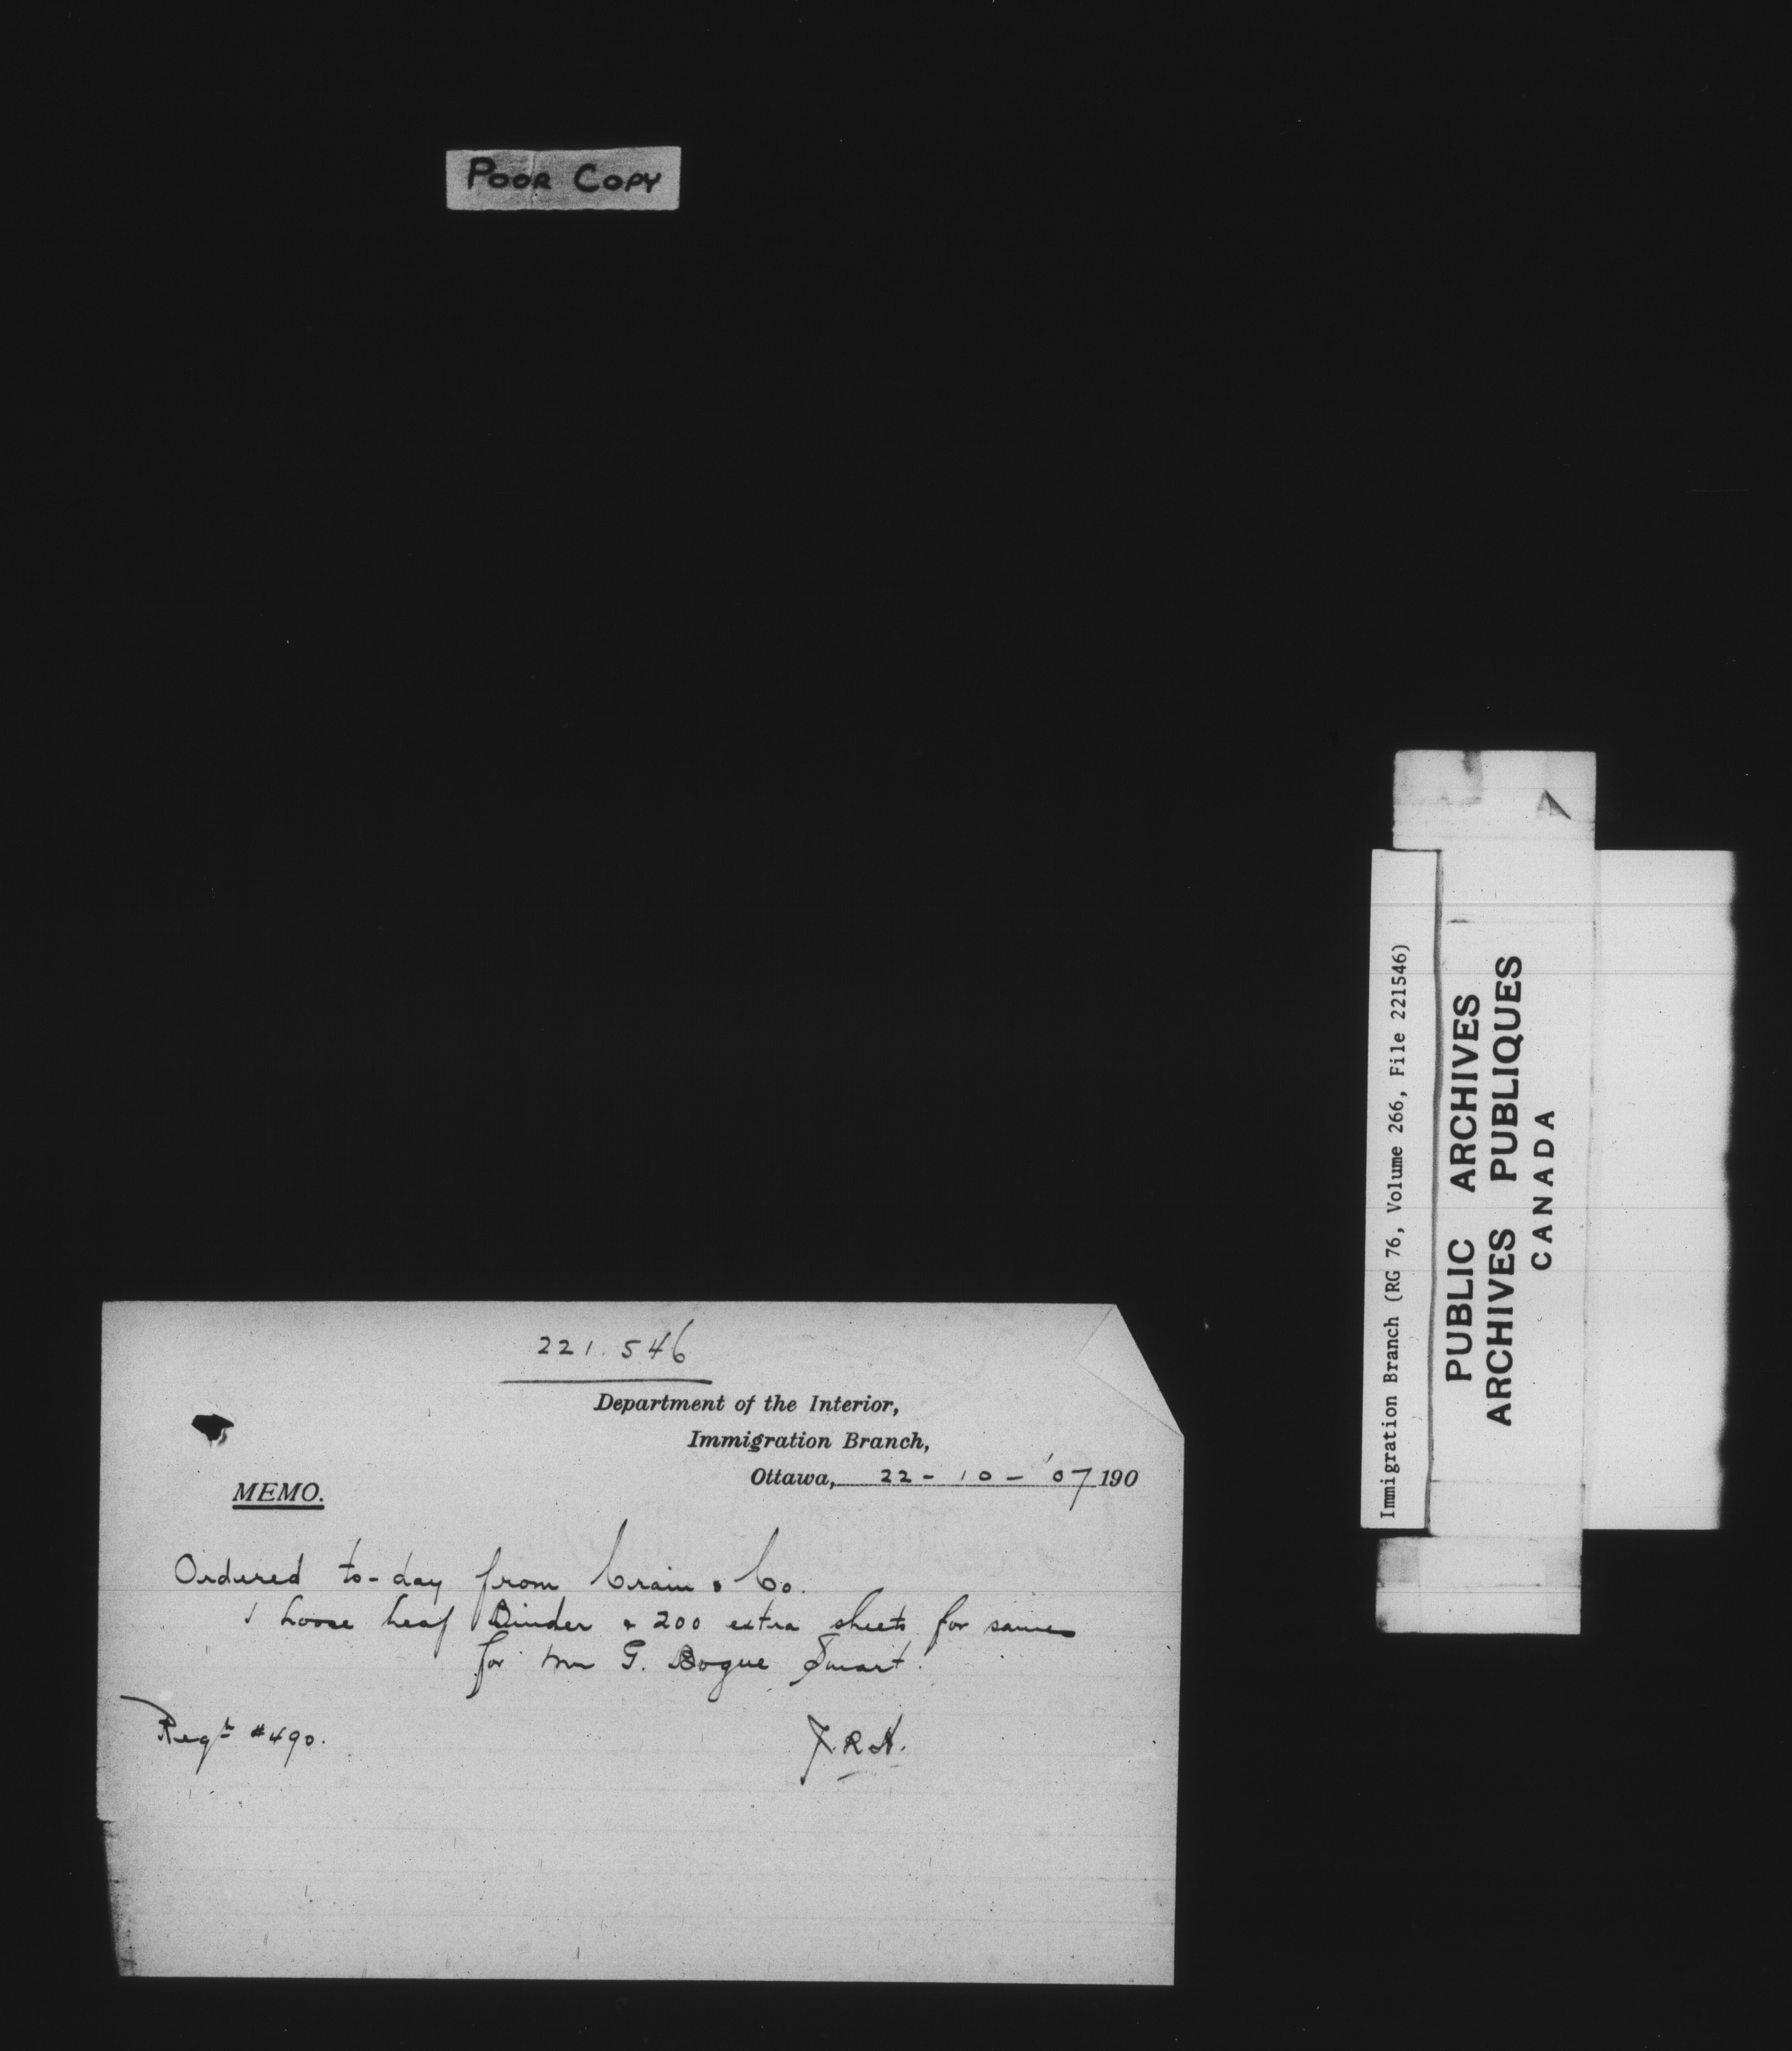 POOR COPY
221.546
Department of the Interior,
Immigration Branch,
Ottawa, 22 - 10 - '07 190
MEMO.
Ordered to-day from Crain & Co.
1 Loose Leaf Binder & 200 extra sheets for same
for Mr G. Bogue Smart.
Reqt #490.
J.R.H.
Immigration Branch (RG 76, Volume 266, File 221546)
PUBLIC ARCHIVES
ARCHIVES PUBLIQUES
CANADA